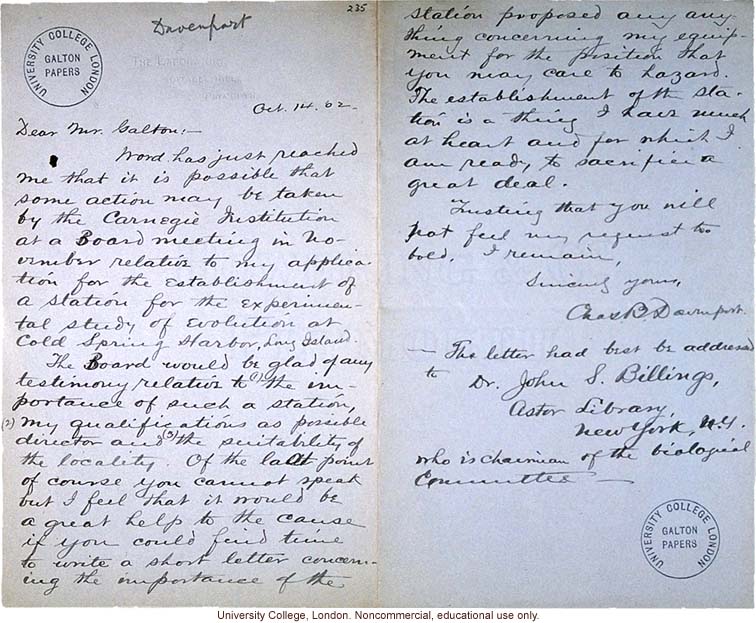 Davenport
235
UNIVERSITY COLLEGE LONDON
GALTON
PAPERS
Oct. 14. 02-
Dear Mr. Galton:-
Word has just reached
me that it is possible that
some action may be taken
by the Carnegie Institution
at a Board meeting in No-
vember relative to my applica-
tion for the establishment of
a station for the experimen-
tal study of Evolution at
Cold Spring Harbor, Long Island.
The Board would be glad of any
testimony relative to (1) the im-
portance of such a station,
(2) my qualifications as possible
director and (3) the suitability of
the locality. Of the last point
of course you cannot speak
but I feel that it would be
a great help to the cause
if you could find time
to write a short letter concern-
ing the importance of the
station proposed any any
thing concerning my equip-
ment for the position that
you may care to hazard.
The establishment of the sta-
tion is a thing I have much
at heart and for which I
am ready to sacrifice a
great deal.
Trusting that you will
not feel my request too
bold, I remain,
Sincerely yours,
Chas B Davenport.
— The letter had best be addressed
to Dr. John S. Billings,
Astor Library,
New York, N.Y.
who is chairman of the biological
Committee —
UNIVERSITY COLLEGE LONDON
GALTON
PAPERS
University College, London. Noncommercial, educational use only.